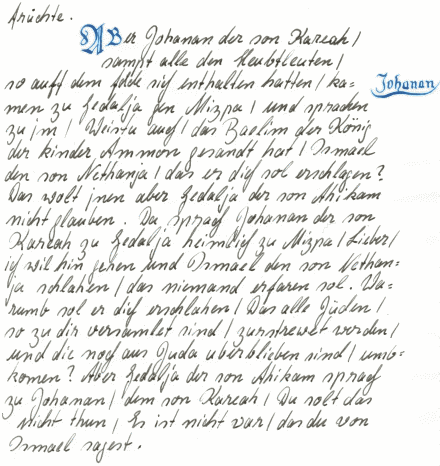 früchte.
ABer Johanan der son Kareah/
sampt allen den Heubtleuten/
so auff dem felde sich enthalten hatten/ ka=
Johanan
men zu Gedalja gen Mizpa/ und sprachen
zu jm/ Weistu auch/ das Baelim der König
der kinder Ammon gesandt hat/ Ismael
den son Nethanja/ das er dich sol erschlagen?
Das wolt jnen aber Gedalja der son Ahikam
nicht glauben. Da sprach Johanan der son
Kareah zu Gedalja heimlich zu Mizpa/ Lieber/
ich wil hin gehen und Ismael den son Nethan=
ja schlahen/ das niemand erfaren sol. Wa=
rumb sol er dich erschlahen/ Das alle Jüden/
so zu dir versamlet sind/ zurstrewet werden/
und die noch aus Juda uberblieben sind/ umb=
komen? Aber Gedalja der son Ahikam sprach
zu Johanan/ dem son Kareah/ Du solt das
nicht thun/ Es ist nicht war/ das du von
Ismael sagest.